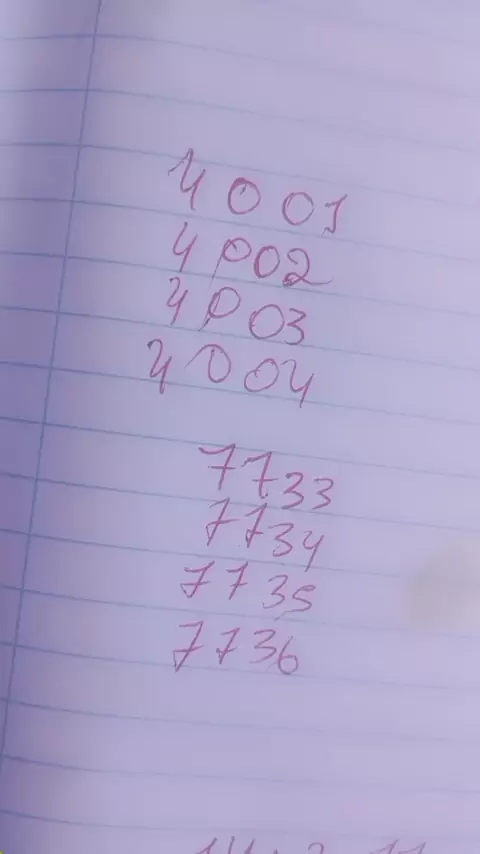 4001
4002
4003
4004
7733
7734
7735
7736